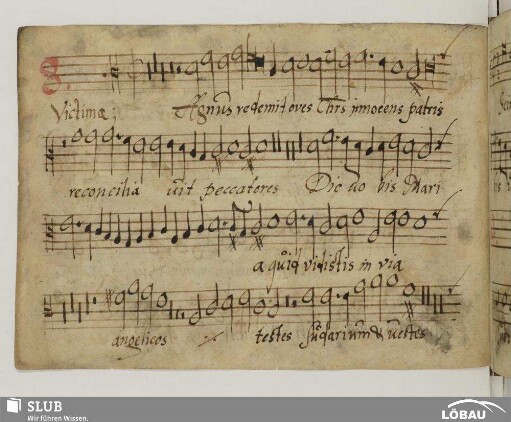 Victimæ; Agnus redemit oves Chrs innocens patris
reconcilia uit peccatores Dic no bis Mari
a quid vidistis in via
angelicos testes sudarium & vestes
SLUB
Wir führen Wissen.
LÖBAU